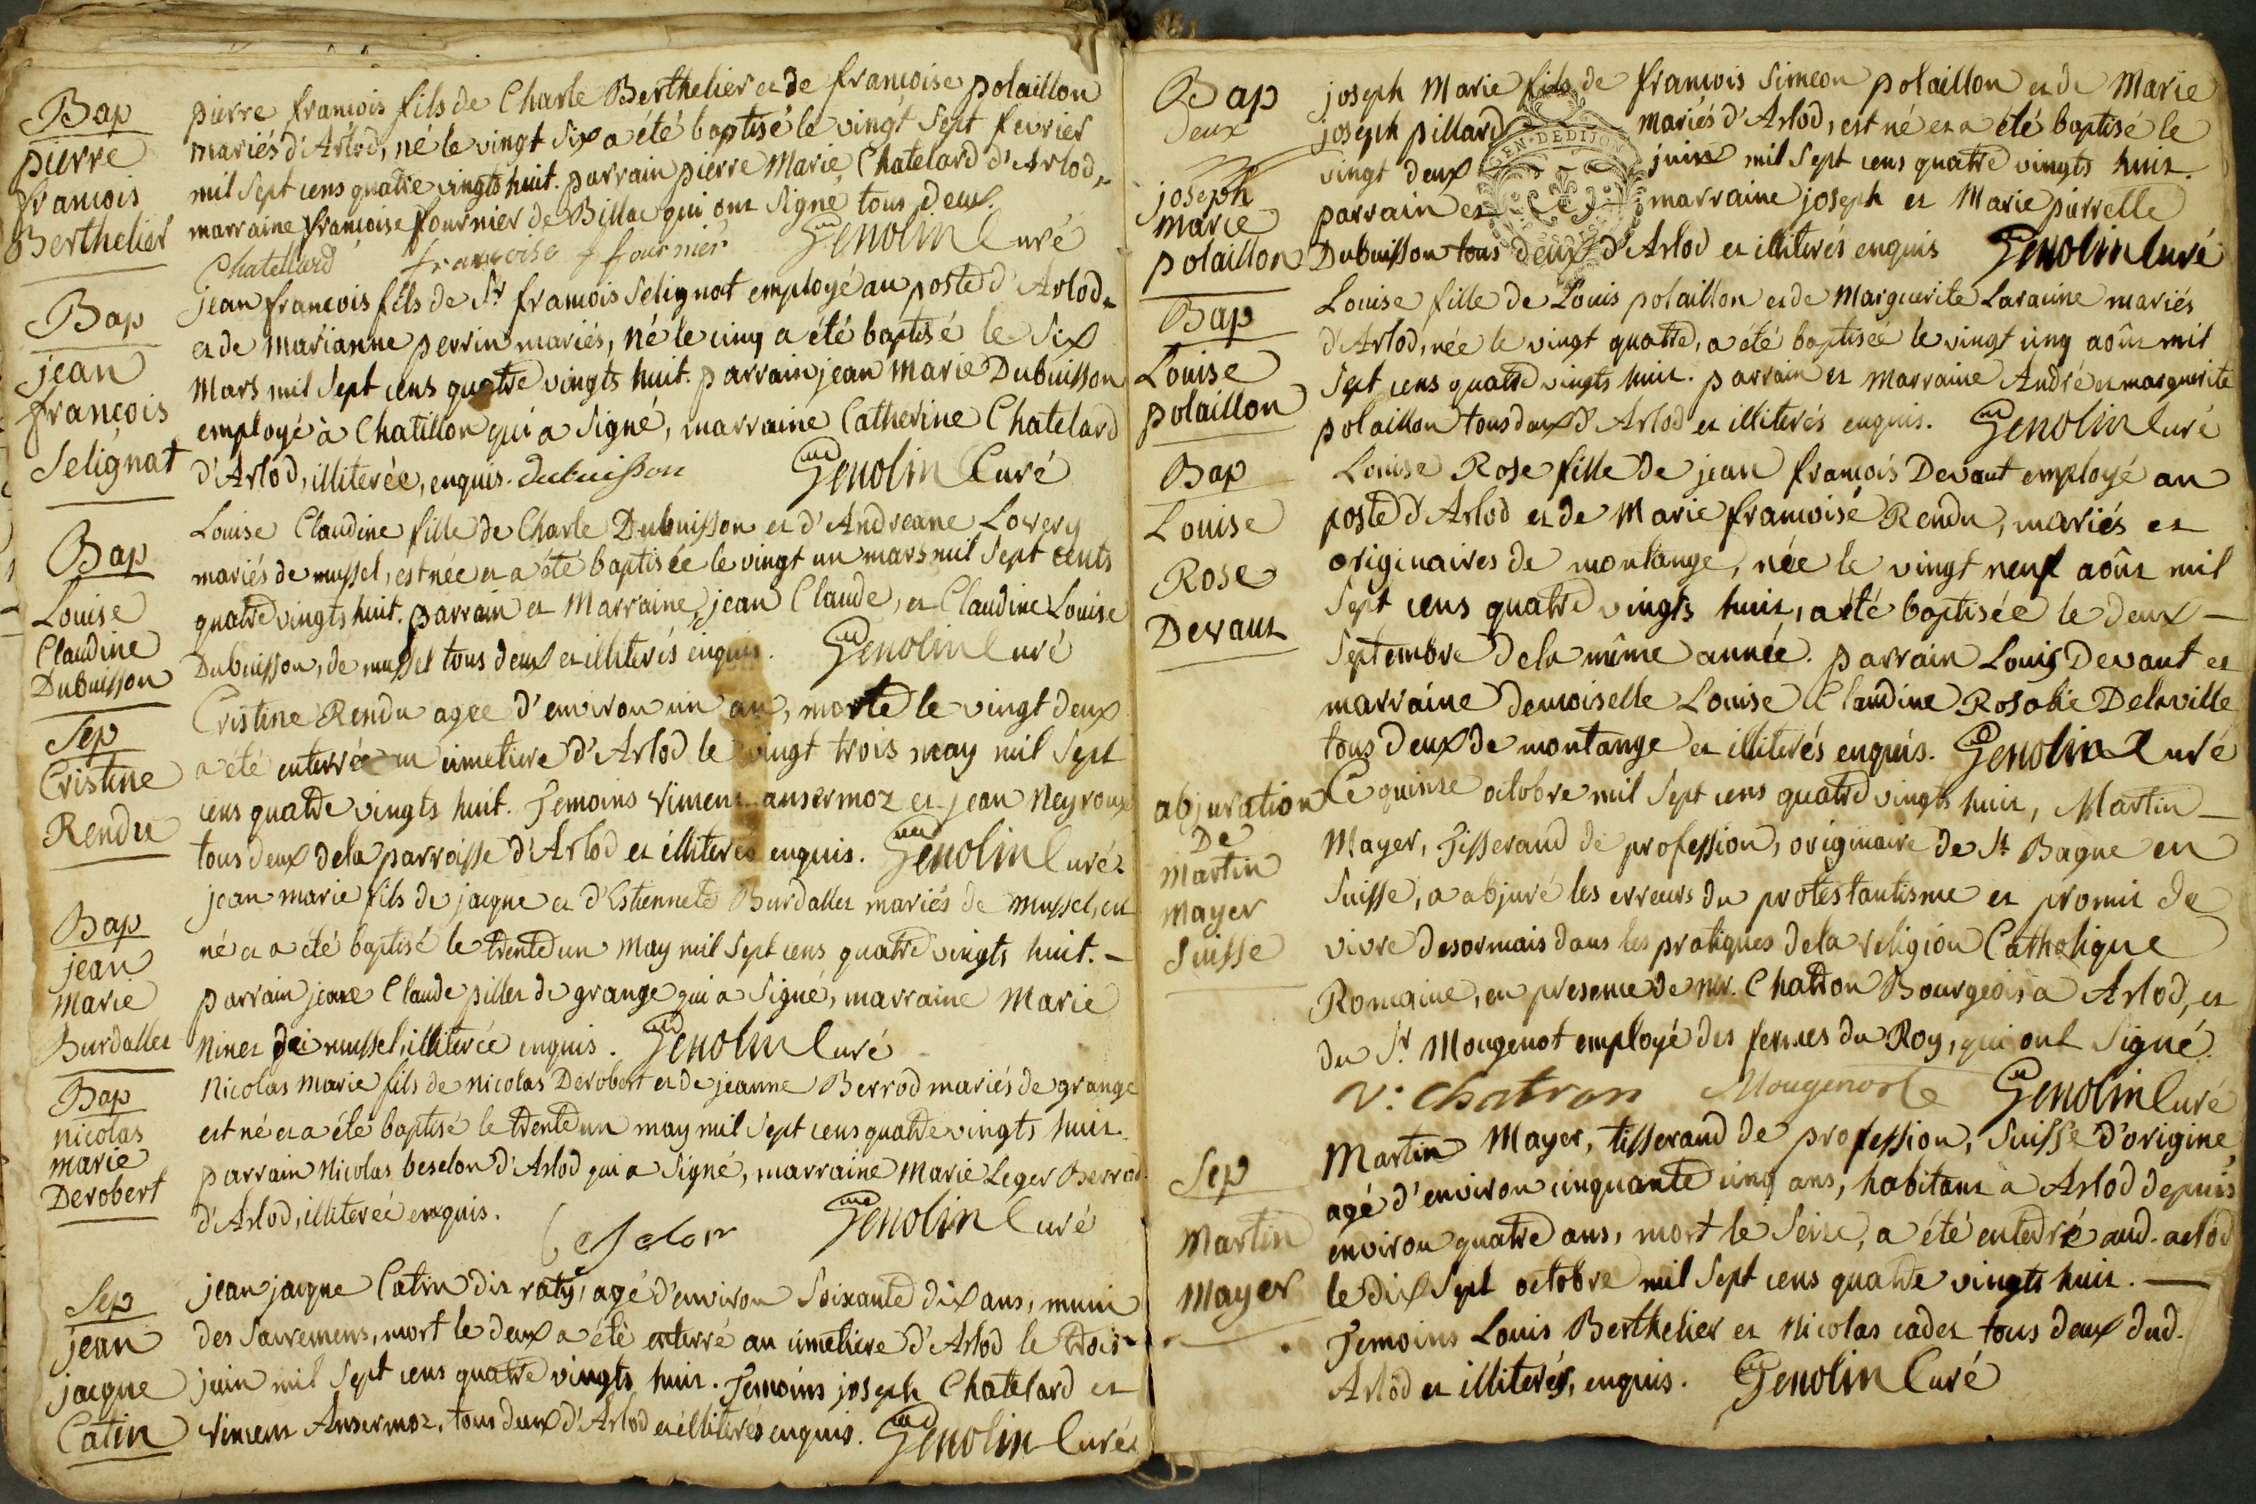 Bap
pierre
francois
Berthelier
pierre francois fils de Charle Berthelier et de francoise polaillon
mariés d'Arlod, né le vingt six a été baptisé le vingt sept fevrier
mil sept cens quatre vingts huit. parrain pierre Marie Chatelard d'Arlod,
marraine francoise fournier de Billiac qui ont signé tous deux.
Chatellard francoise fournier Genolin Curé
Bap
jean
françois
Selignat
jean francois fils de Sr francois Selignat employé au poste d'Arlod
et de marianne perrin mariés, né le cinq a été baptisé le six
Mars mil sept cens quatre vingts huit. parrain jean marie Dubuisson
employé à Chatillon qui a signé, marraine Catherine Chatelard
d'Arlod, illiterée, enquis. dubuisson Genolin Curé
Bap
Louise
Claudine
Dubuisson
Louise Claudine fille de Charle Dubuisson et d'Andreane Lovery
mariés de mussel, est née et a été baptisée le vingt un mars mil sept cents
quatre vingts huit. parrain et Marraine, jean Claude, et Claudine Louise
Dubuisson, de mussel tous deux et illiterés enquis. Genolin Curé
Sep
Cristine
Rendu
Cristine Rendu agee d'environ un an, morte le vingt deux
a été enterrée au cimetiere d'Arlod le vingt trois may mil sept
cens quatre vingts huit. Temoins vincent ansermoz et jean Neyroux
tous deux de la parroisse d'Arlod et illiterés enquis. Genolin Curé
Bap
jean
Marie
Burdallet
jean marie fils de jacque et d'Estiennete Burdallet mariés de mussel, est
né et a été baptisé le trente un May mil sept cens quatre vingts huit. –
parrain jean Claude pillet de grange qui a signé, marraine Marie
Ninet de mussel, illiterée enquis. Genolin Curé
Bap
nicolas
marie
Derobert
Nicolas marie fils de nicolas Derobert et de jeanne Berrod mariés de grange
est né et a été baptisé le trente un may mil sept cens quatre vingts huit.
parrain Nicolas beselon d'Arlod qui a signé, marraine Marie Leger Berrod
d'Arlod, illiterée enquis.
Genolin Curé
Sep
jean
jacque
Catin
jean jacque Catin dit raty, agé d'environ soixante dix ans, muni
des sacremens, mort le deux a été enterré au cimetiere d'Arlod le trois
juin mil sept cens quatre vingts huit. Temoins joseph Chatelard et
vincent Ansermoz, tous deux d'Arlod et illiterés enquis. Genolin Curé
Bap
Deux
joseph
marie
polaillon
joseph Marie fils de francois Simeon polaillon et de Marie
joseph pillard mariés d'Arlod, est né et a été baptisé le
vingt deux juin mil sept cens quatre vingts huit.
parrain et marraine joseph et Marie pierrelle
Dubuisson tous deux d'Arlod et illiterés enquis Genolin Curé
GEN · DE DIJON
Bap
Louise
polaillon
Louise fille de Louis polaillon et de Marguerite Laracine mariés
d'Arlod, née le vingt quatre, a été baptisée le vingt cinq aôut mil
sept cens quatre vingts huit. parrain et marraine André et marguerite
polaillon tous deux d'Arlod et illiterés enquis. Genolin Curé
Bap
Louise
Rose
Devaut
Louise Rose fille de jean francois Devaut employé au
poste d'Arlod et de Marie francoise Rendu, mariés et
originaires de montange, née le vingt neuf aôut mil
sept cens quatre vingts huit, a été baptisée le deux –
septembre de la même année. parrain Louis Devaut et
marraine demoiselle Louise Claudine Rosalie Delaville
tous deux de montange et illiterés enquis. Genolin Curé
abjuration
De
Martin
Mayer
Suisse
Ce quinze octobre mil sept cens quatre vingts huit, Martin –
Mayer, Tisserand de profession, originaire de St Bague en
Suisse, a abjuré les erreurs du protestantisme et promit de
vivre desormais dans les pratiques de la religion Catholique
Romaine, en presence de mr. Chatron Bourgeois à Arlod, et
du Sr Mougenot employé des fermes du Roy, qui ont signé.
V: chatron Mougenote Genolin Curé
Sep
Martin
Mayer
Martin Mayer, tisserand de profession, Suisse d'origine,
agé d'environ cinquante cinq ans, habitant à Arlod depuis
environ quatre ans, mort le seize, a été enterré aud. arlod
le dix sept octobre mil sept cens quatre vingts huit. –
Temoins Louis Berthelier et Nicolas cadet tous deux dud.
Arlod et illiterés, enquis. Genolin Curé